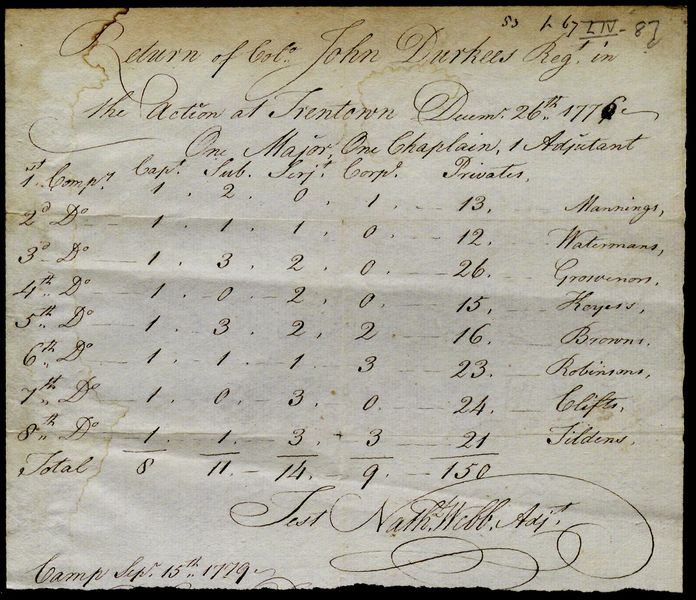 83 L 67 LIV - 82
Return of Colo. John Durkees Regt. in
the Action at Trentown Decemr. 26th. 1776
One Major, One Chaplain, 1 Adjutant
Capt. Sub. Serjt. Corpl. Privates,
1st. Compy. 1. 2. 0. 1. 13. Mannings,
2d Do 1. 1. 1. 0. 12. Watermans,
3d Do 1. 3. 2. 0. 26. Grosvenors,
4th Do 1. 0. 2. 0. 15. Keyess,
5th Do 1. 3. 2. 2. 16. Browns,
6th Do 1. 1. 1. 3. 23. Robinsons,
7th Do 1. 0. 3. 0. 24. Clifts,
8th Do 1. 1. 3. 3 21 Tildens,
Total 8 11. 14. 9. 150
Test Nathl. Webb. Adjt.
Camp Sepr. 15th. 1779.